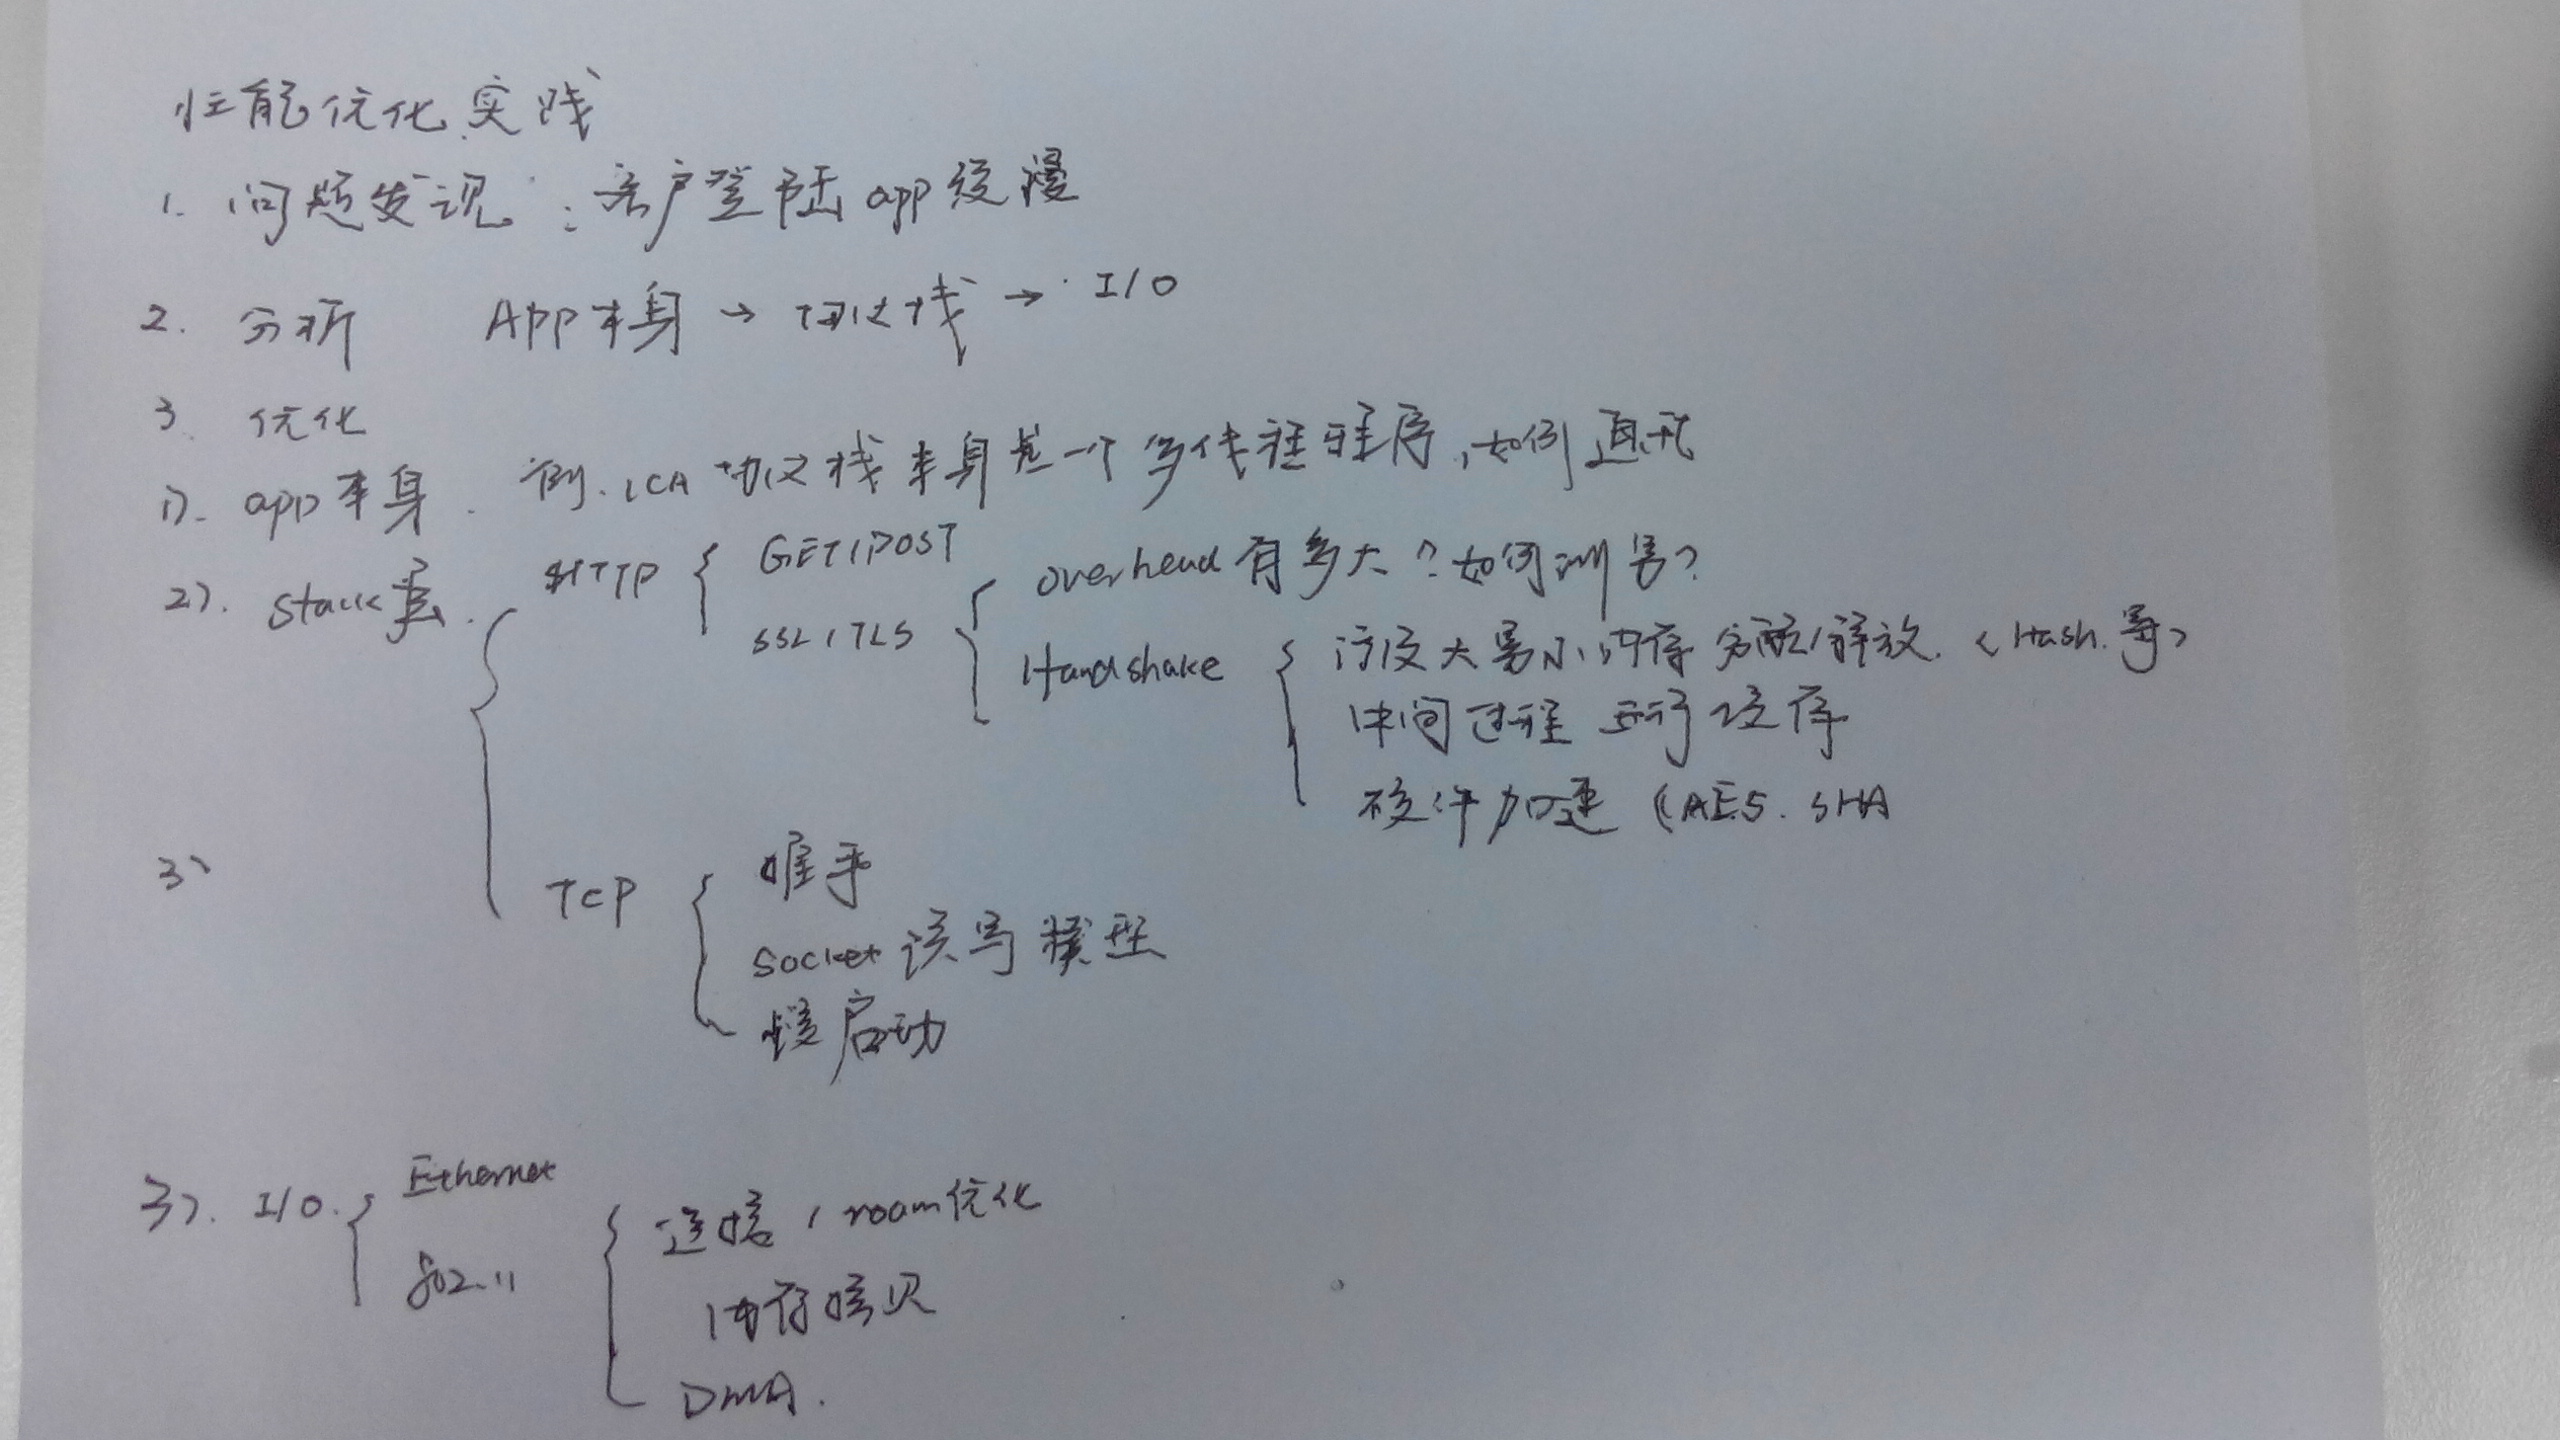 性能优化实践
1. 问题发现：客户登陆app缓慢
2. 分析 App本身 → 协议栈 → I/O
3. 优化
1). app本身. 例. ICA 协议栈本身是一个多线程程序, 如何通讯
2). stack层. HTTP GET/POST
overhead 有多大？如何测量？
SSL/TLS
Handshake 涉及大量小内存分配/释放. (Hash. 等)
中间过程 进行缓存
硬件加速 (AES. SHA
3、
TCP 握手
Socket 读写模型
慢启动
3). I/O. Ethernet
802.11
连接 / roam优化
内存拷贝
DMA.